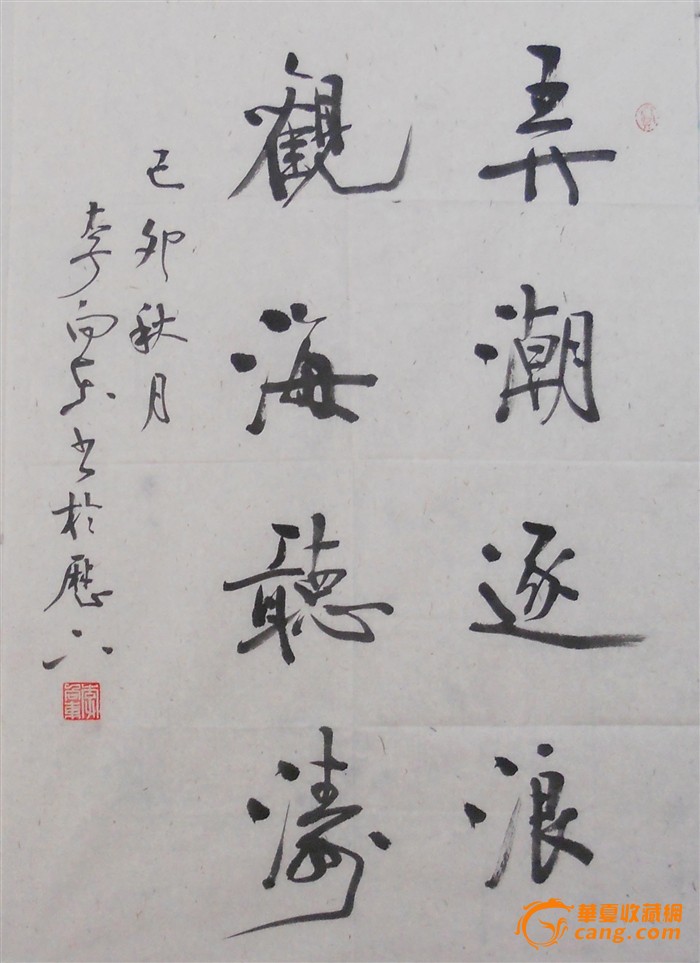 弄潮逐浪
觀海聽濤
己卯秋月
李向东书於歷下
華夏收藏網
cang.com